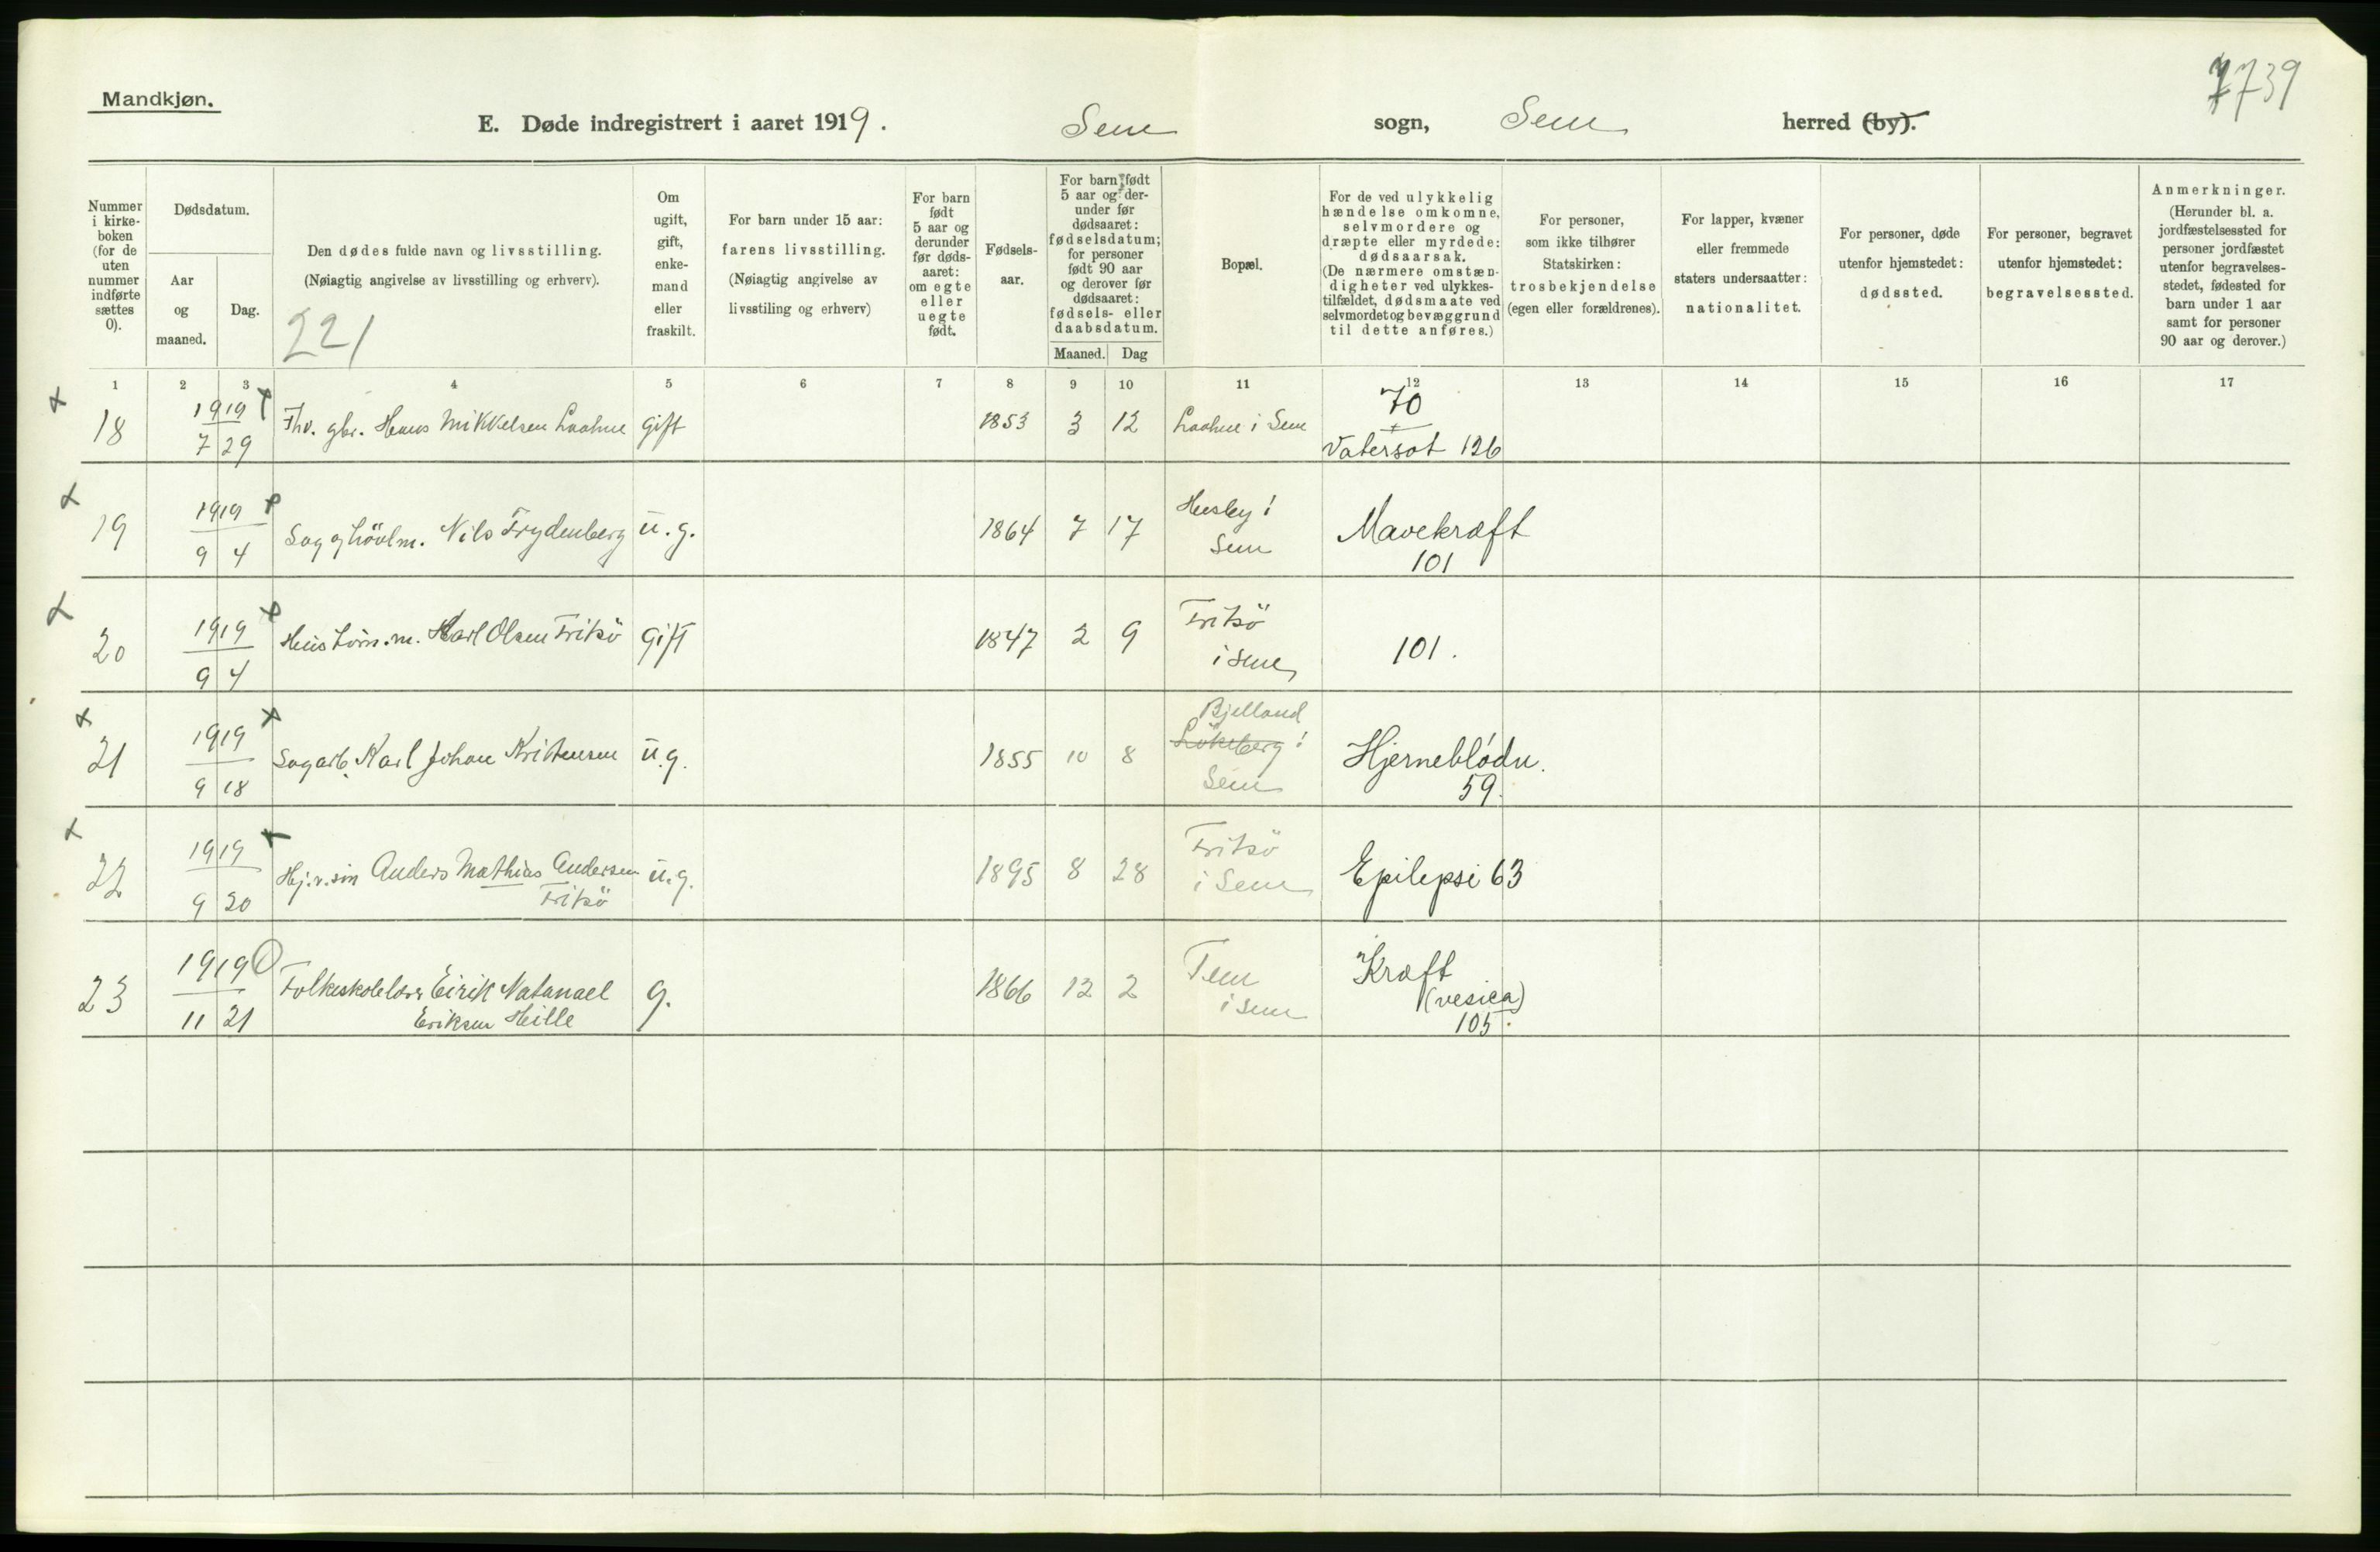 Mandkjøn.
7739
E. Døde indregistrert i aaret 1919. Sem sogn, Sem herred (by).
Nummer i kirke-boken (for de uten nummer indførte sættes 0).
Dødsdatum.
Aar og maaned.
Dag.
Den dødes fulde navn og livsstilling.
(Nøiagtig angivelse av livsstilling og erhverv).
221
Om ugift, gift, enke-mand eller fraskilt.
For barn under 15 aar:
farens livsstilling.
(Nøiagtig angivelse av
livsstiling og erhverv)
For barn født 5 aar og derunder før døds-aaret: om egte eller uegte født.
Fødsels-aar.
For barn født 5 aar og der-under før dødsaaret: fødselsdatum; for personer født 90 aar og derover før dødsaaret: fødsels- eller daabsdatum.
Maaned. Dag
Bopæl.
For de ved ulykkelig hændelse omkomne, selvmordere og dræpte eller myrdede: dødsaarsak.
(De nærmere omstæn-digheter ved ulykkes-tilfældet, dødsmaate ved selvmordet og bevæggrund til dette anføres.)
For personer,
som ikke tilhører
Statskirken:
trosbekjendelse
(egen eller forældrenes).
For lapper, kvæner
eller fremmede
staters undersaatter:
nationalitet.
For personer, døde
utenfor hjemstedet:
dødssted.
For personer, begravet
utenfor hjemstedet:
begravelsessted.
Anmerkninger.
(Herunder bl. a. jordfæstelsessted for personer jordfæstet utenfor begravelses-stedet, fødested for barn under 1 aar samt for personer 90 aar og derover.)
1 2 3 4 5 6 7 8 9 10 11 12 13 14 15 16 17
18 1919 7 29 Fhv. gbr. Hans Mikkelsen Laahne gift 1853 3 12 Laahne i Sem 70 Vatersot 126
19 1919 9 4 Sag og hövlm. Nils Frydenberg u.g. 1864 7 17 Husby i Sem Mavekræft 101
20 1919 9 4 Karl Olsen Fritsö gift 1847 2 9 Fritsö i Sem 101.
21 1919 9 18 Sagarb. Karl Johan Kristensen u.g. 1855 10 8 Bjelland Lökeberg i Sem Hjerneblödn. 59.
22 1919 9 20 Anders Mathias Andersen Fritsö u.g. 1895 8 28 Fritsö i Sem Epilepsi 63
23 1919 11 21 Folkeskolelærer Eirik Natanael Eriksen Heille g. 1866 12 2 Tem i Sem Kræft (vesica) 105.